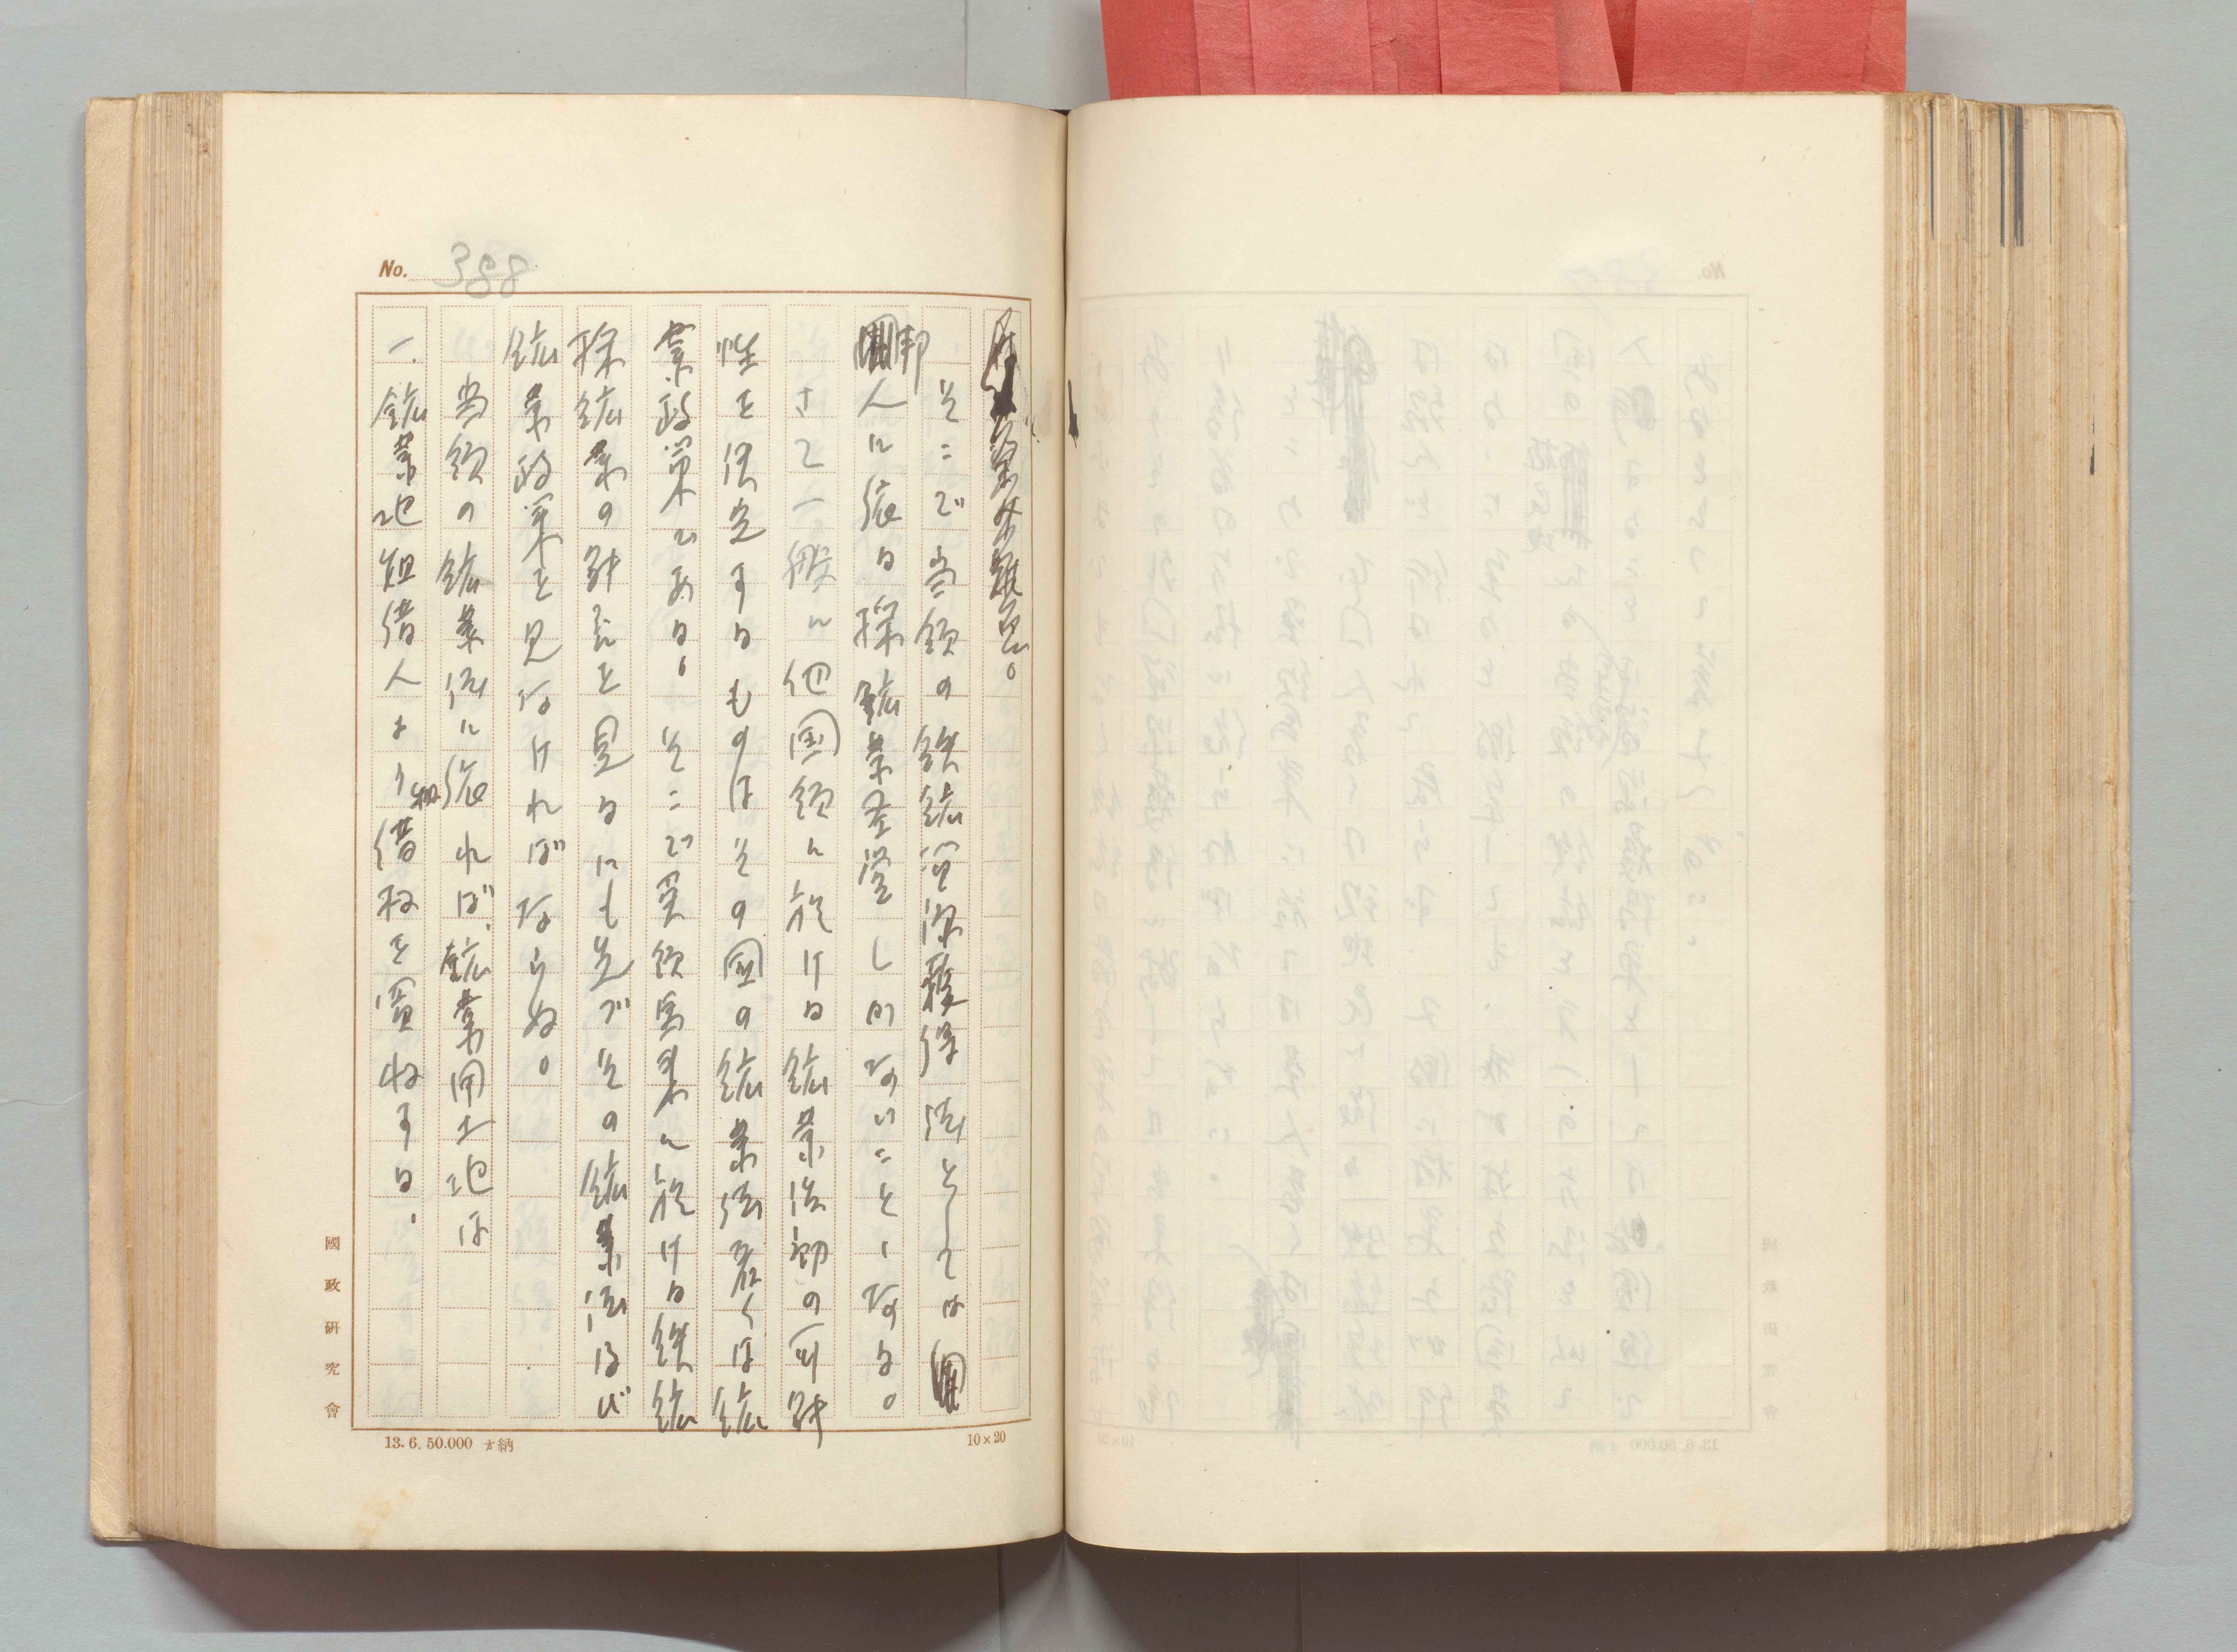 No. 388
そこで當領の鉄鉱資源獲得法としては
邦人に依る採鉱業経営しかないことゝなる。
さて一般に他国領に於ける鉱業活動の可能
性を決定するものはその国の鉱業法若くは鉱
業政策である。そこで英領馬来に於ける鉄鉱
採鉱業の計畫を見るにも先づその鉱業法及び
鉱業政策を見なければならぬ。
当領の鉱業法に依れば、鉱業用土地は
一、鉱業地租借人より租借权を買收する。
國政研究會
13. 6. 50.000 納
10×20